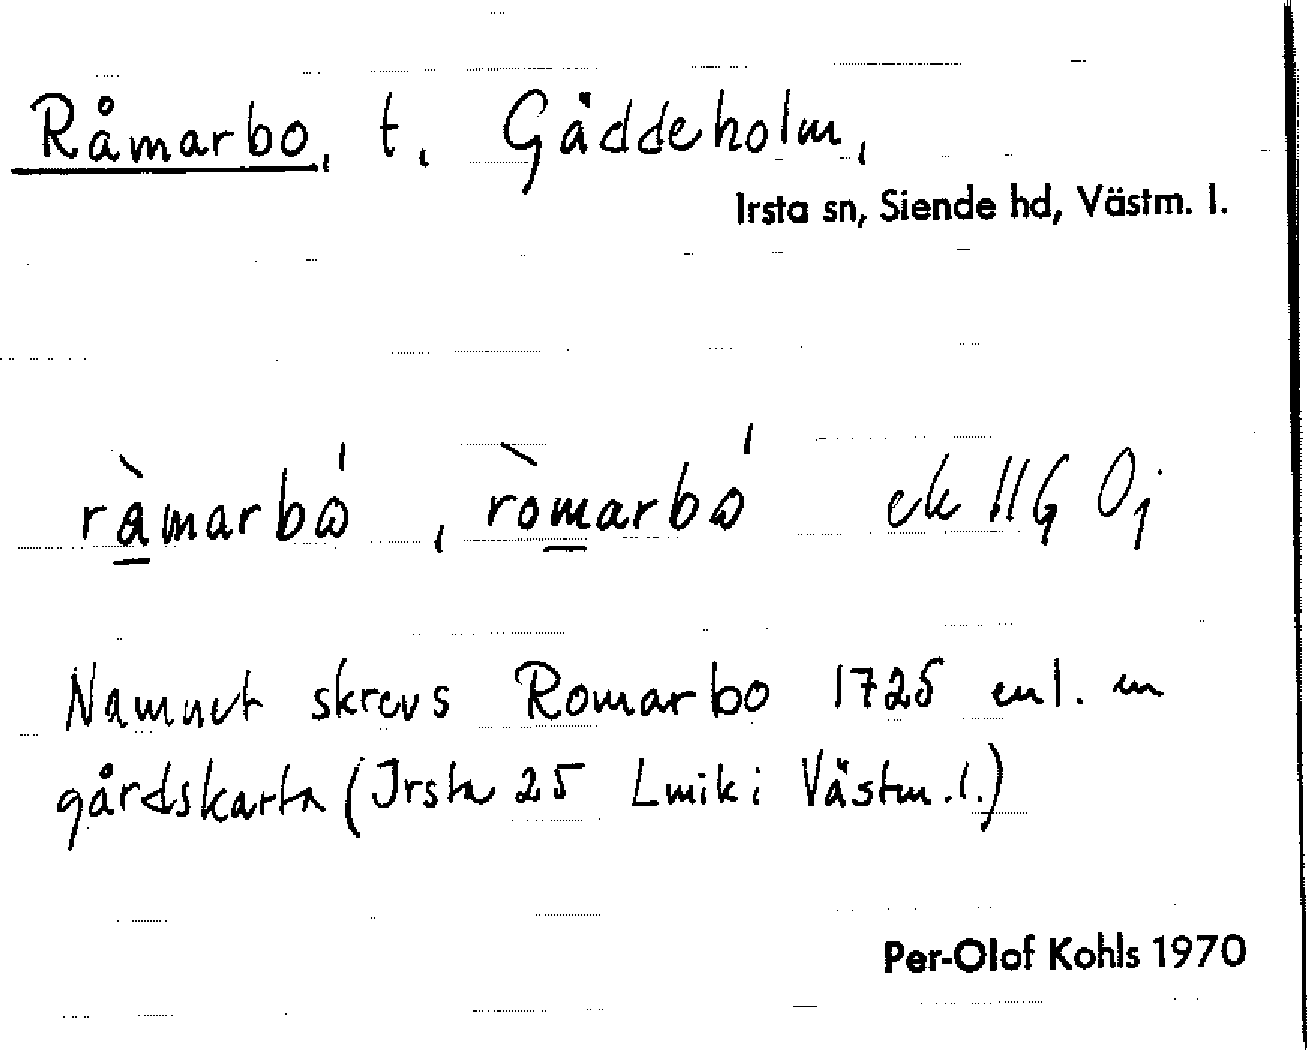 Råmarbo, t. Gäddeholm,
Irsta sn, Siende hd, Västm. l.
ràmarbώ, ròmarbώ ek HG Oj
Namnet skrevs Romarbo 1725 enl. en
gårdskarta (Irsta 25 Lmik i Västm. l.)
Per-Olof Kohls 1970